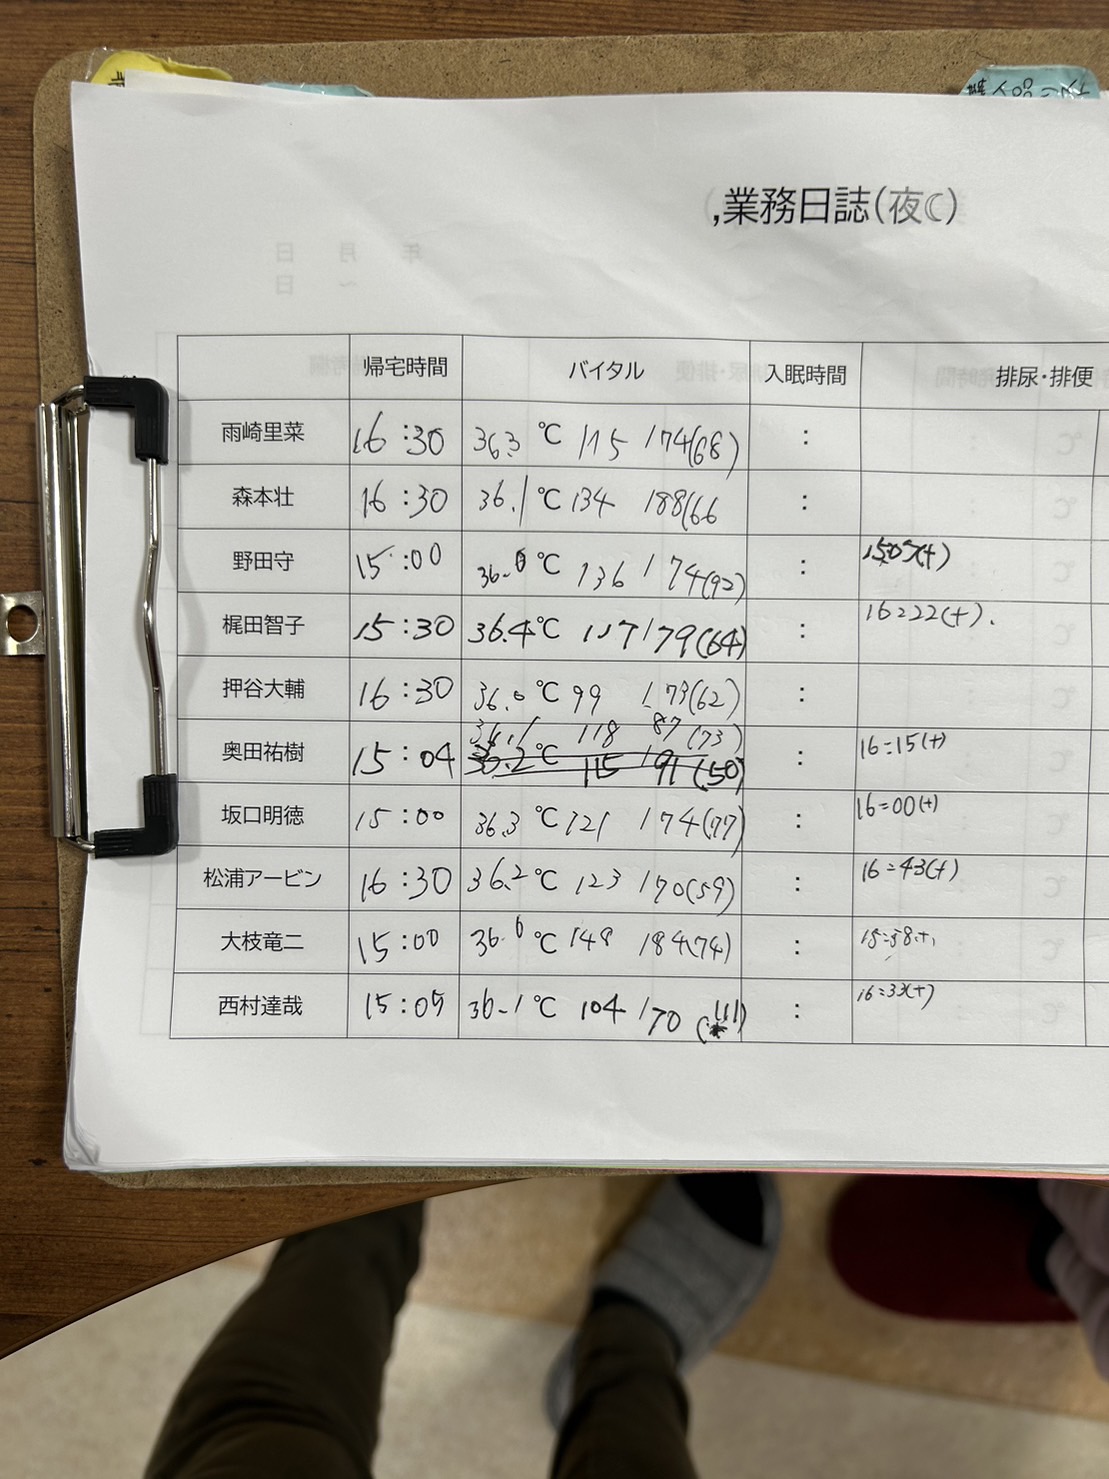 業務日誌(夜
帰宅時間 バイタル 入眠時間 排尿・排便
雨崎里菜 16:30 36.3 ℃ 115 /74(68) :
森本壮 16:30 36.1 ℃ 134 /88(66 :
野田守 15:00 36.6 ℃ 136 /74(92) :
梶田智子 15:30 36.4℃ 117/79(64) : 16=22(+).
押谷大輔 16:30 36.0 ℃ 99 /73(62) :
36.1 118 87 (73)
奥田祐樹 15:04 36.2℃ 115 /91(50) : 16=15(+)
坂口明徳 15:00 36.3 ℃ 121 /74(77) : 16=00(+)
松浦アービン 16:30 36.2℃ 123 /70(59) : 16=43(+)
大枝竜二 15:00 36.6 ℃ 148 /84(74) :
西村達哉 15:05 36.1℃ 104 /70 : 16=33(+)